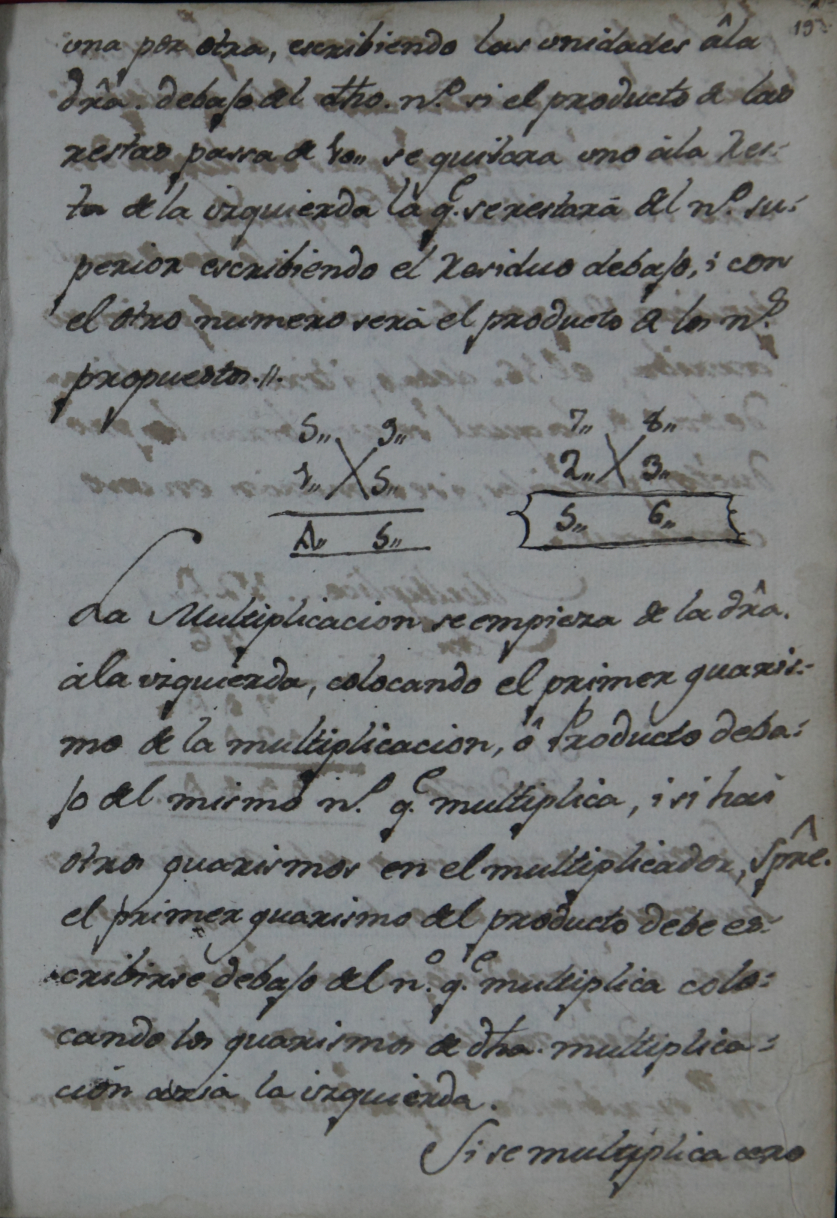 19
una por otra, escribiendo las unidades âla
drâ. debajo del dho. n.º si el producto de las
restas passa de 10,, se quitara uno àla Res-
ta de la izquierda la q.e se restarà del n.º su-
perior escribiendo el Residuo debajo, i con
el otro numero serà el producto de los n.os
propuestos.//.
5,, 9,, 7,, 8,,
1,, 5,, 2,, 3,,
4,, 5,, 5,, 6,,
La Multiplicacion se empieza de la drâ.
àla izquierda, colocando el primer guaris-
mo de la multiplicacion, ô Producto deba-
jo del mismo n.º q.e multiplica, i si hai
otros guarismos en el multiplicador, Sprê.
el primer guarismo del producto debe es-
cribirse debajo del n.º q.e multiplica colo-
cando los guarismos de dha. multiplica-
ción azia la izquierda.
Si se multiplica cero